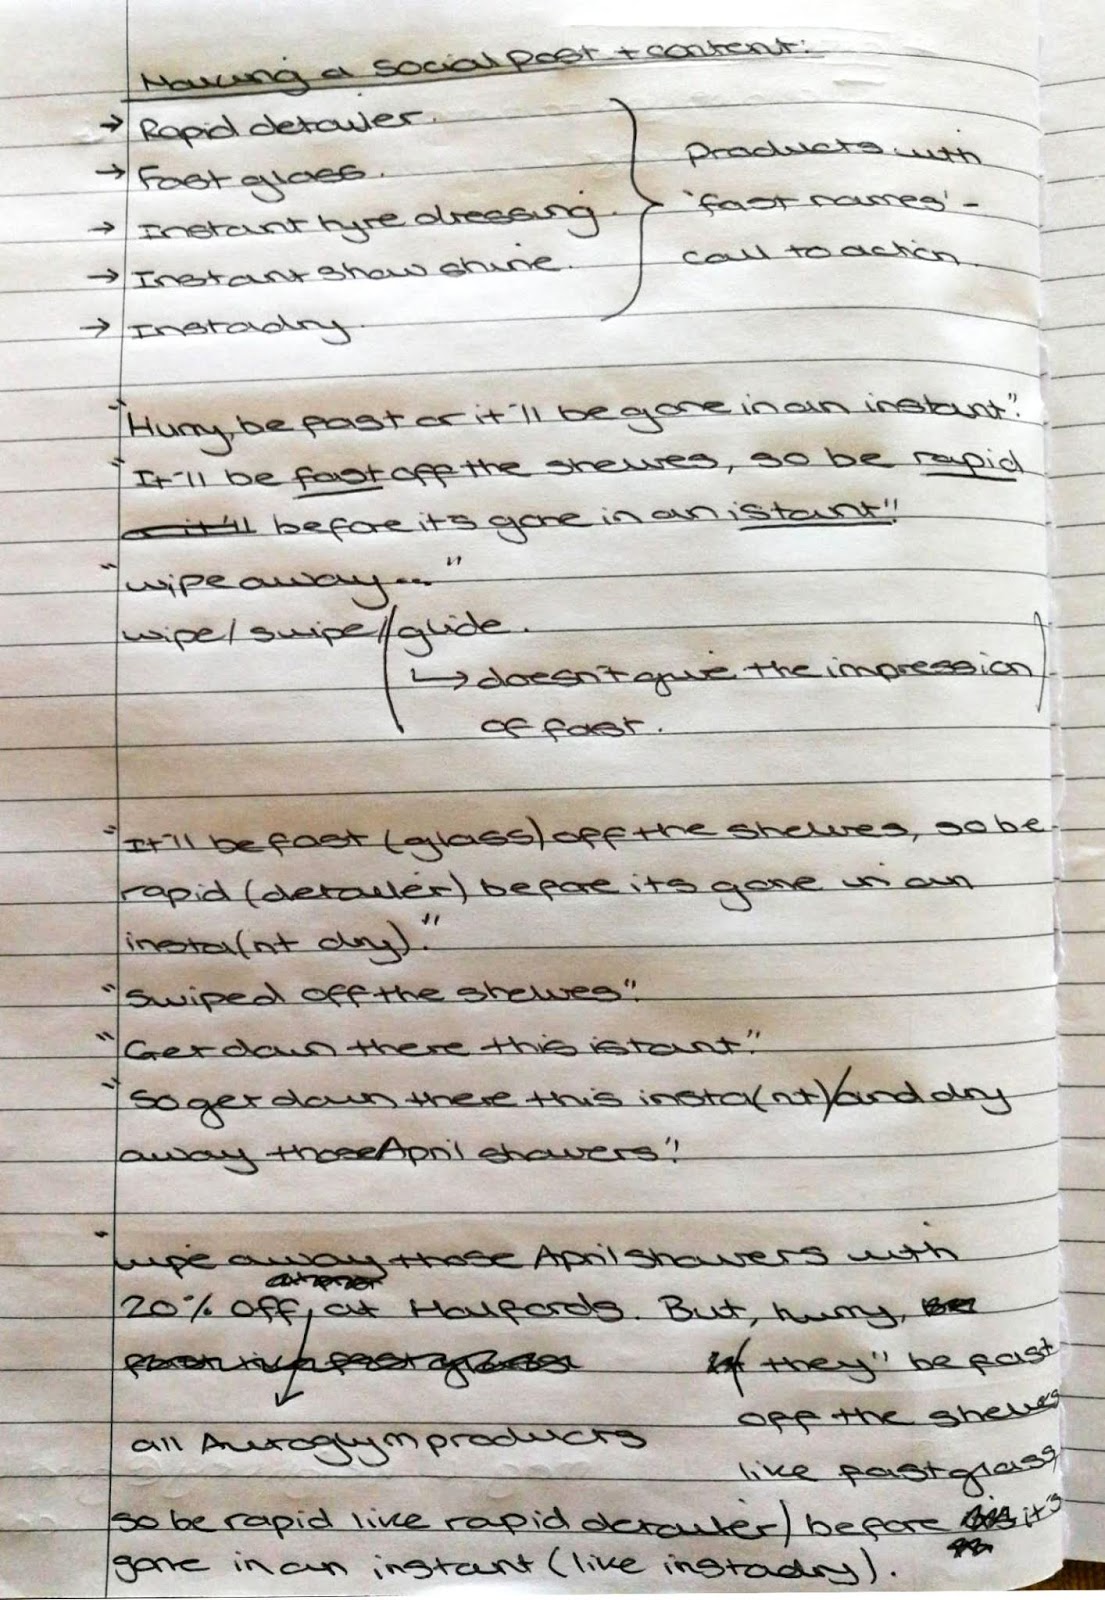 Making a social post + content:
→ Rapid detailer.
→ Fast glass.
→ Instant tyre dressing.
→ Instant show shine.
→ Instadry.
Products with
'fast names' -
call to action.
"Hurry, be fast or it'll be gone in an instant".
"It'll be fast off the shelves, so be rapid
or it'll before its gone in an istant"
"wipe away..."
wipe / swipe // glide.
↳ doesn't give the impression
of fast.
"It'll be fast (glass) off the shelves, so be
rapid (detailer) before its gone in an
insta(nt dry)."
"swiped off the shelves".
"Get down there this istant."
"So get down there this insta(nt)/and dry
away those April showers".
"wipe away those April showers with
20% off, at Halfords. But, hurry, be
they'll be fast
off the shelves
all Autoglym products
like fast glass
so be rapid like rapid detailer) before it's
gone in an instant (like instadry).